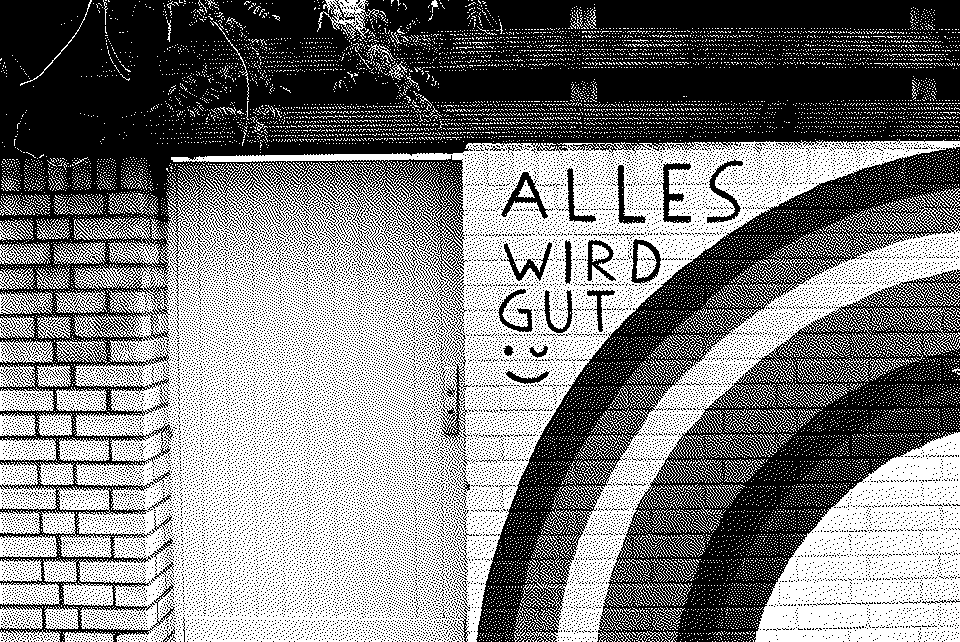 ALLES
WIRD
GUT